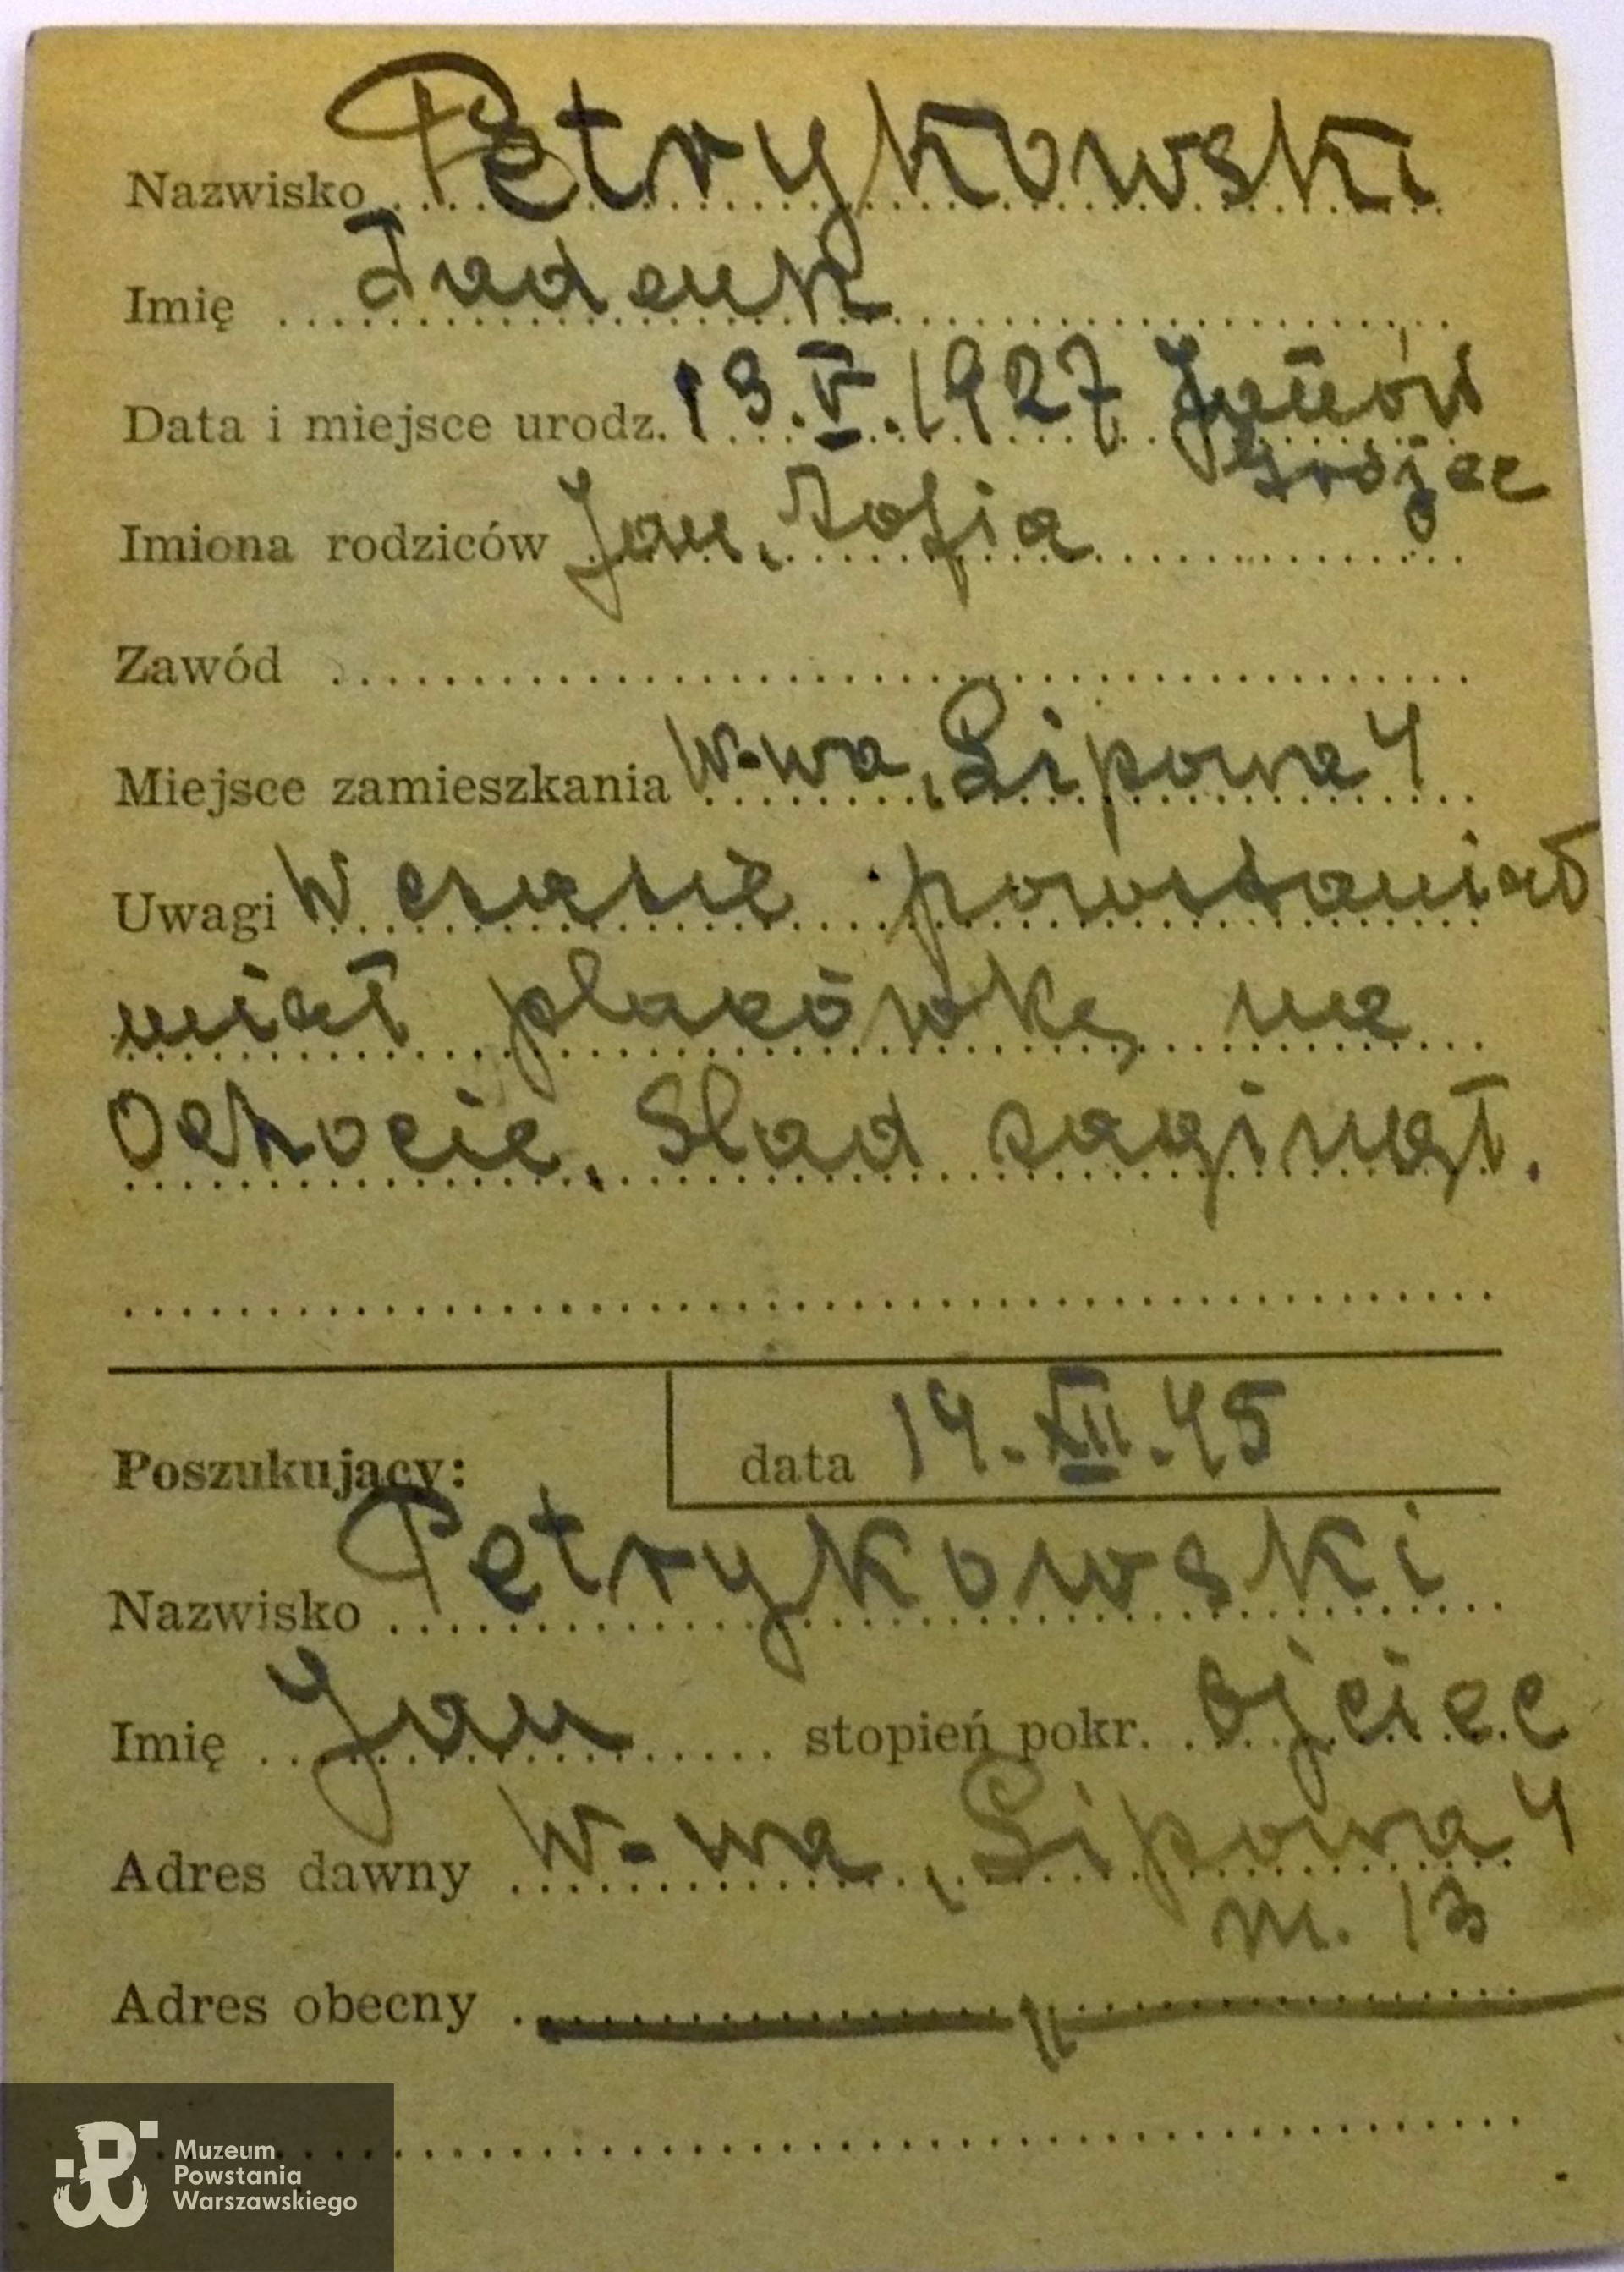 Nazwisko Petrykowski
Imię Tadeusz
Data i miejsce urodz. 13.V.1927
Grójec
Imiona rodziców Jan, Zofia
Zawód
Miejsce zamieszkania W-wa, Lipowa 4
Uwagi W czasie powstania
miał placówkę na
Ochocie. Ślad zaginął.
Poszukujący: data 14.XII.45
Nazwisko Petrykowski
Imię Jan stopień pokr. ojciec
Adres dawny W-wa, Lipowa 4
m. 13
Adres obecny — " —
Muzeum
Powstania
Warszawskiego